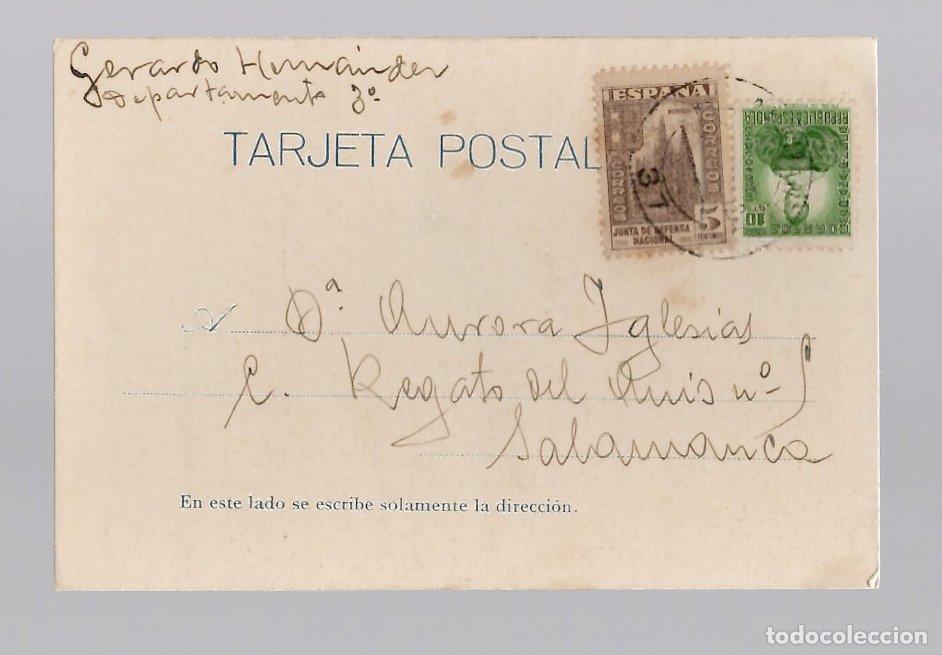 Gerardo Hernández
Departamento 3º
TARJETA POSTAL
ESPAÑA
CORREOS
CORREOS
JUNTA DE DEFENSA
NACIONAL
37
REPUBLICA ESPAÑOLA
10
A Dª. Aurora Iglesias
C. Regato del Anís nº 5
Salamanca
En este lado se escribe solamente la dirección.
todocoleccion